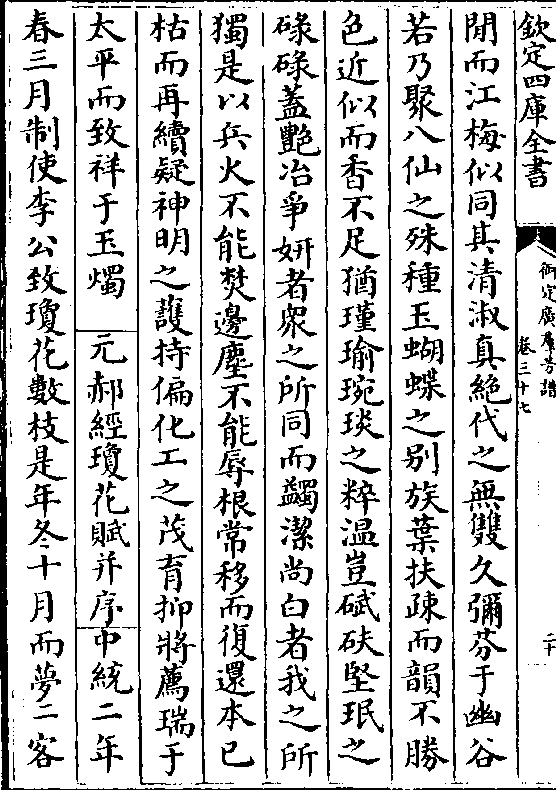 欽定四庫全書
御定廣羣芳譜
卷三十七
二十
閒而江梅似同其清淑真絕代之無雙久彌芬于幽谷
若乃聚八仙之殊種玉蝴蝶之别族葉扶疎而韻不勝
色近似而香不足猶瑾瑜琬琰之粹温豈碔砆堅珉之
碌碌蓋艷冶爭妍者衆之所同而蠲潔尚白者我之所
獨是以兵火不能焚邊塵不能辱根常移而復還本已
枯而再續疑神明之䕶持偏化工之茂育抑將薦瑞于
太平而致祥于玉燭
元郝經瓊花賦并序
中統二年
春三月制使李公致瓊花數枝是年冬十月而夢二客